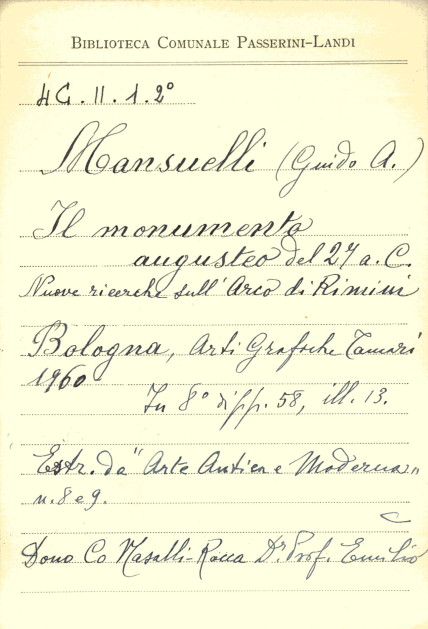 BIBLIOTECA COMUNALE PASSERINI-LANDI
4G. II. 1. 2°
Mansuelli (Guido A.)
Il monumento
augusteo del 27 a. C.
Nuove ricerche sull'Arco di Rimini
Bologna, Arti Grafiche Tamari
1960
In 8° di pp. 58, ill. 13.
Estr. da "Arte Antica e Moderna"
n. 8 e 9.
Dono Co Nasalli-Rocca Dr. Prof. Emilio